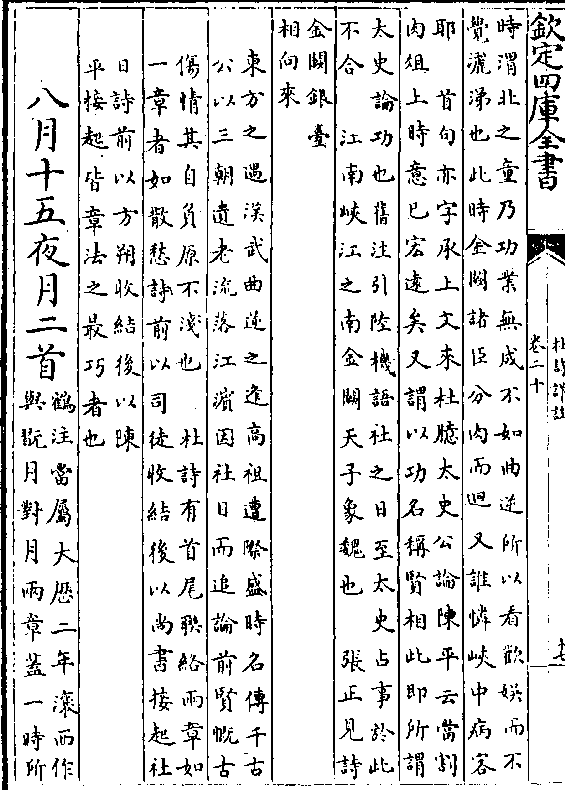 欽定四庫全書
杜詩詳註
卷二十
十七
時渭北之童乃功業無成不如曲逆所以看歡娱而不
覺灑涕也此時金闕諸臣分肉而迴又誰憐峽中病客
耶　首句亦字承上文來杜臆太史公論陳平云當割
肉俎上時意已宏遠矣又謂以功名稱賢相此即所謂
太史論功也舊注引陸機語社之日至太史占事於此
不合　江南峽江之南金闕天子象魏也　張正見詩
金闕銀臺
相向來
東方之遇漢武曲逆之逢高祖遭際盛時名傳千古
公以三朝遺老流落江濱因社日而追論前賢慨古
傷情其自負原不淺也　杜詩有首尾聯絡兩章如
一章者如散愁詩前以司徒收結後以尚書接起社
日詩前以方朔收結後以陳
平接起皆章法之最巧者也
八月十五夜月二首
鶴注當屬大厯二年瀼西作
與翫月對月兩章蓋一時所